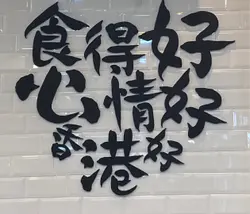 食得好
心情好
香港好